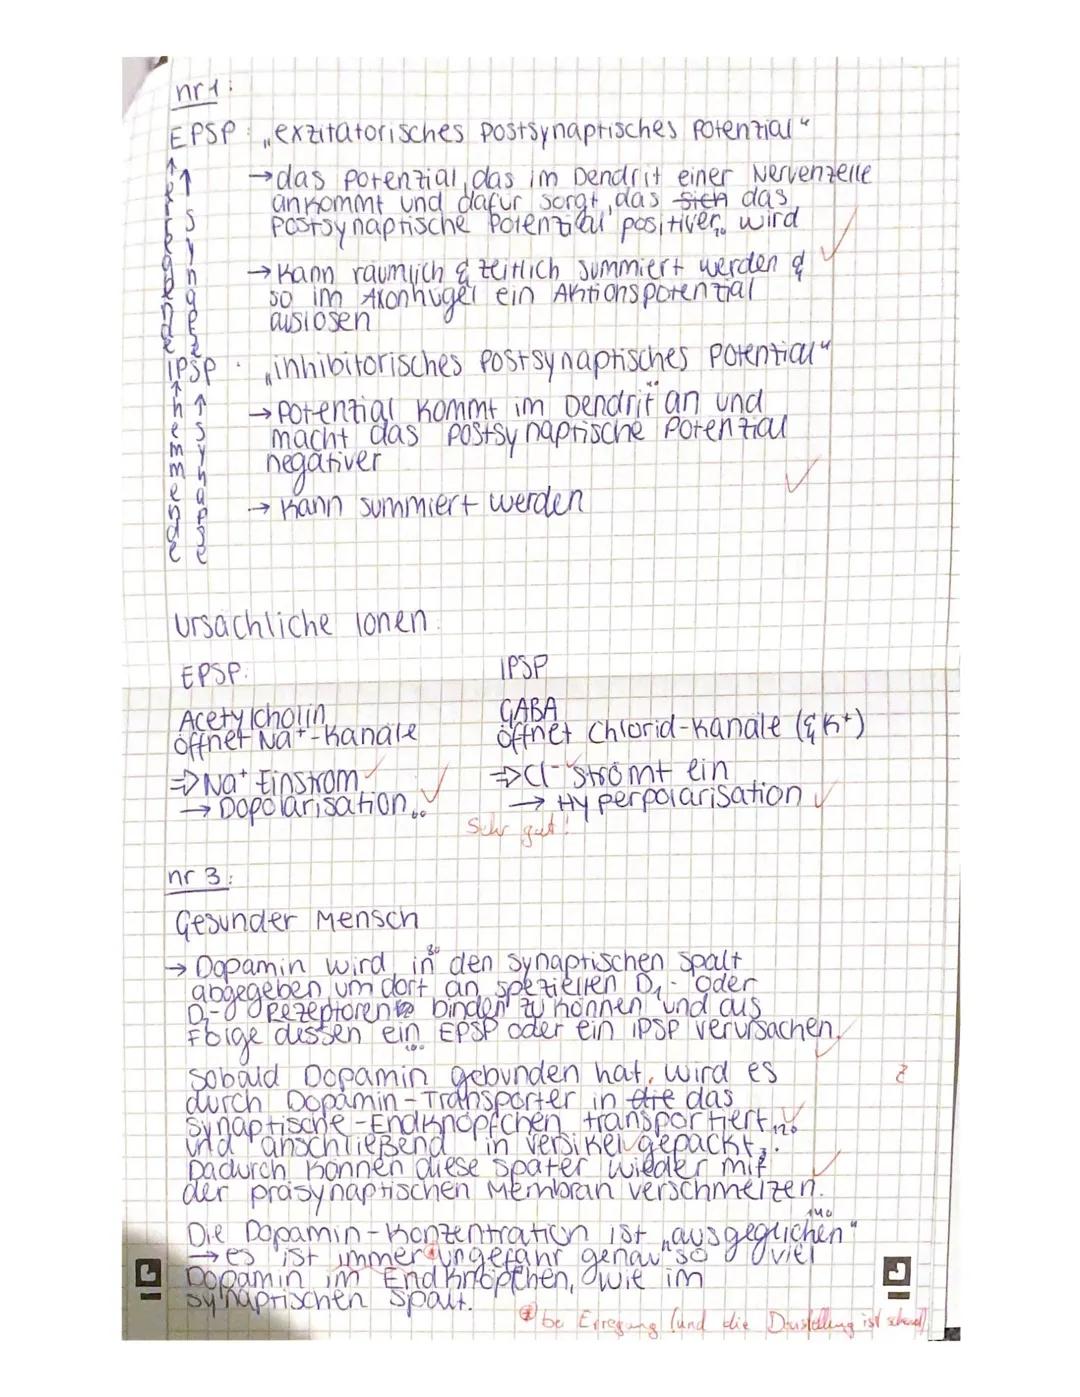 nr 1:
EPSP: „exzitatorisches postsynaptisches Potenzial"
→ das Potenzial, das im Dendrit einer Nervenzelle
ankommt und dafür sorgt, das sich das
postsynaptische Potenzial positiver wird
→ Kann räumlich & zeitlich summiert werden &
so im Axonhügel ein Aktionspotenzial
auslösen
IPSP: „inhibitorisches postsynaptisches Potential"
hemmende
synapse
→ Potenzial kommt im Dendrit an und
macht das postsynaptische Potenzial
negativer
→ Kann summiert werden
Ursächliche Ionen:
EPSP: IPSP
Acetylcholin GABA
öffnet Na⁺-Kanäle öffnet Chlorid-Kanäle (& K⁺)
⇒ Na⁺ Einstrom ⇒ Cl⁻ strömt ein
→ Dopolarisation → Hyperpolarisation
Sehr gut!
nr 3:
Gesunder Mensch
→ Dopamin wird in den synaptischen Spalt
abgegeben um dort an speziellen D₁- oder
Rezeptoren binden zu können und als
Folge dessen ein EPSP oder ein IPSP verursachen.
Sobald Dopamin gebunden hat, wird es
durch Dopamin-Transporter in die das
synaptische-Endknöpfchen transportiert
und anschließend in Versikel gepackt.
Dadurch können diese später wieder mit
der präsynaptischen Membran verschmelzen.
Die Dopamin-Konzentration ist „ausgeglichen"
→ es ist immer ungefähr genau so viel
Dopamin im Endknöpfchen, wie im
synaptischen Spalt.
bei Erregung (und die Darstellung ist